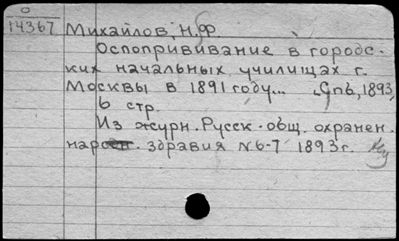 О
14367
Михайлов, Н.Ф
Оспопрививание в городс-
ких начальных училищах г.
Москвы в 1891 году... Спб, 1893,
6 стр.
Из журн. Русск. общ. охранен.
нар. здравия №6-7 1893г.